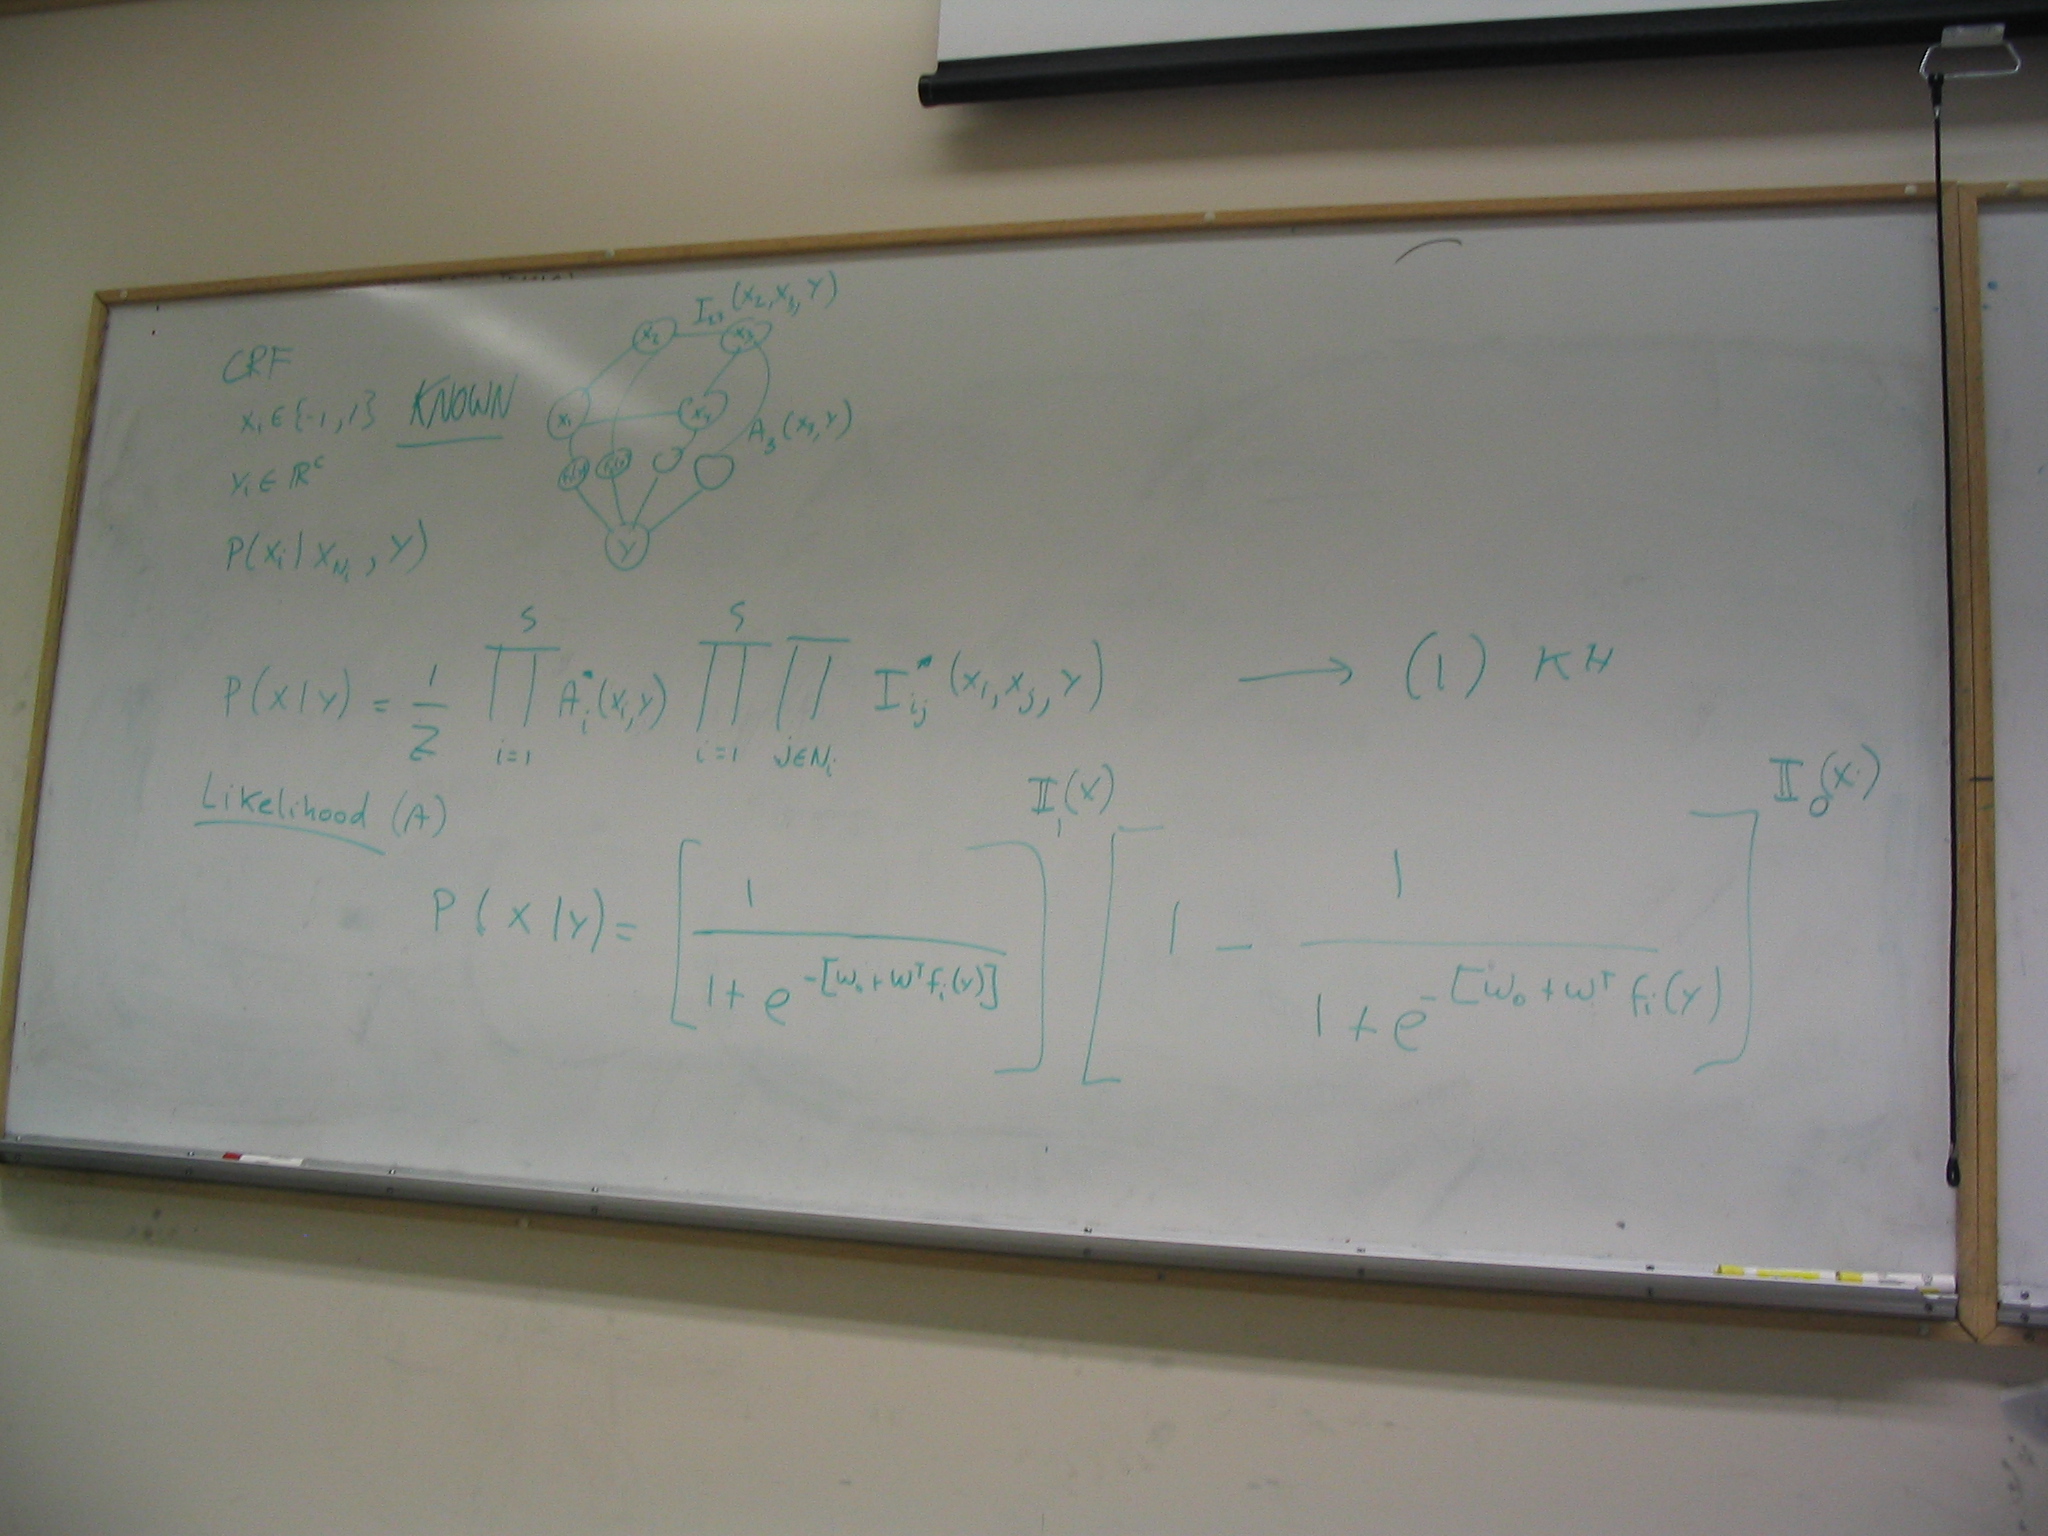 CRF
xᵢ ∈ {-1, 1} KNOWN
yᵢ ∈ ℝᶜ
P(xᵢ | x_Nᵢ, Y)
I₂₃(x₂, x₃, Y)
x₂ x₃
x₁ x₄
A₃(x₃, Y)
Y
P(X|Y) = 1/Z ∏_{i=1}^{S} A*ᵢ(xᵢ, y) ∏_{i=1}^{S} ∏_{j∈Nᵢ} I*ᵢⱼ(xᵢ, xⱼ, Y) → (1) KH
Likelihood (A)
P(X|Y) = [1 / (1 + e^{-[w₀ + wᵀfᵢ(y)]})]^{𝕀₁(X)} [1 - 1 / (1 + e^{-[w₀ + wᵀfᵢ(y)})]^{𝕀₀(Xᵢ)}